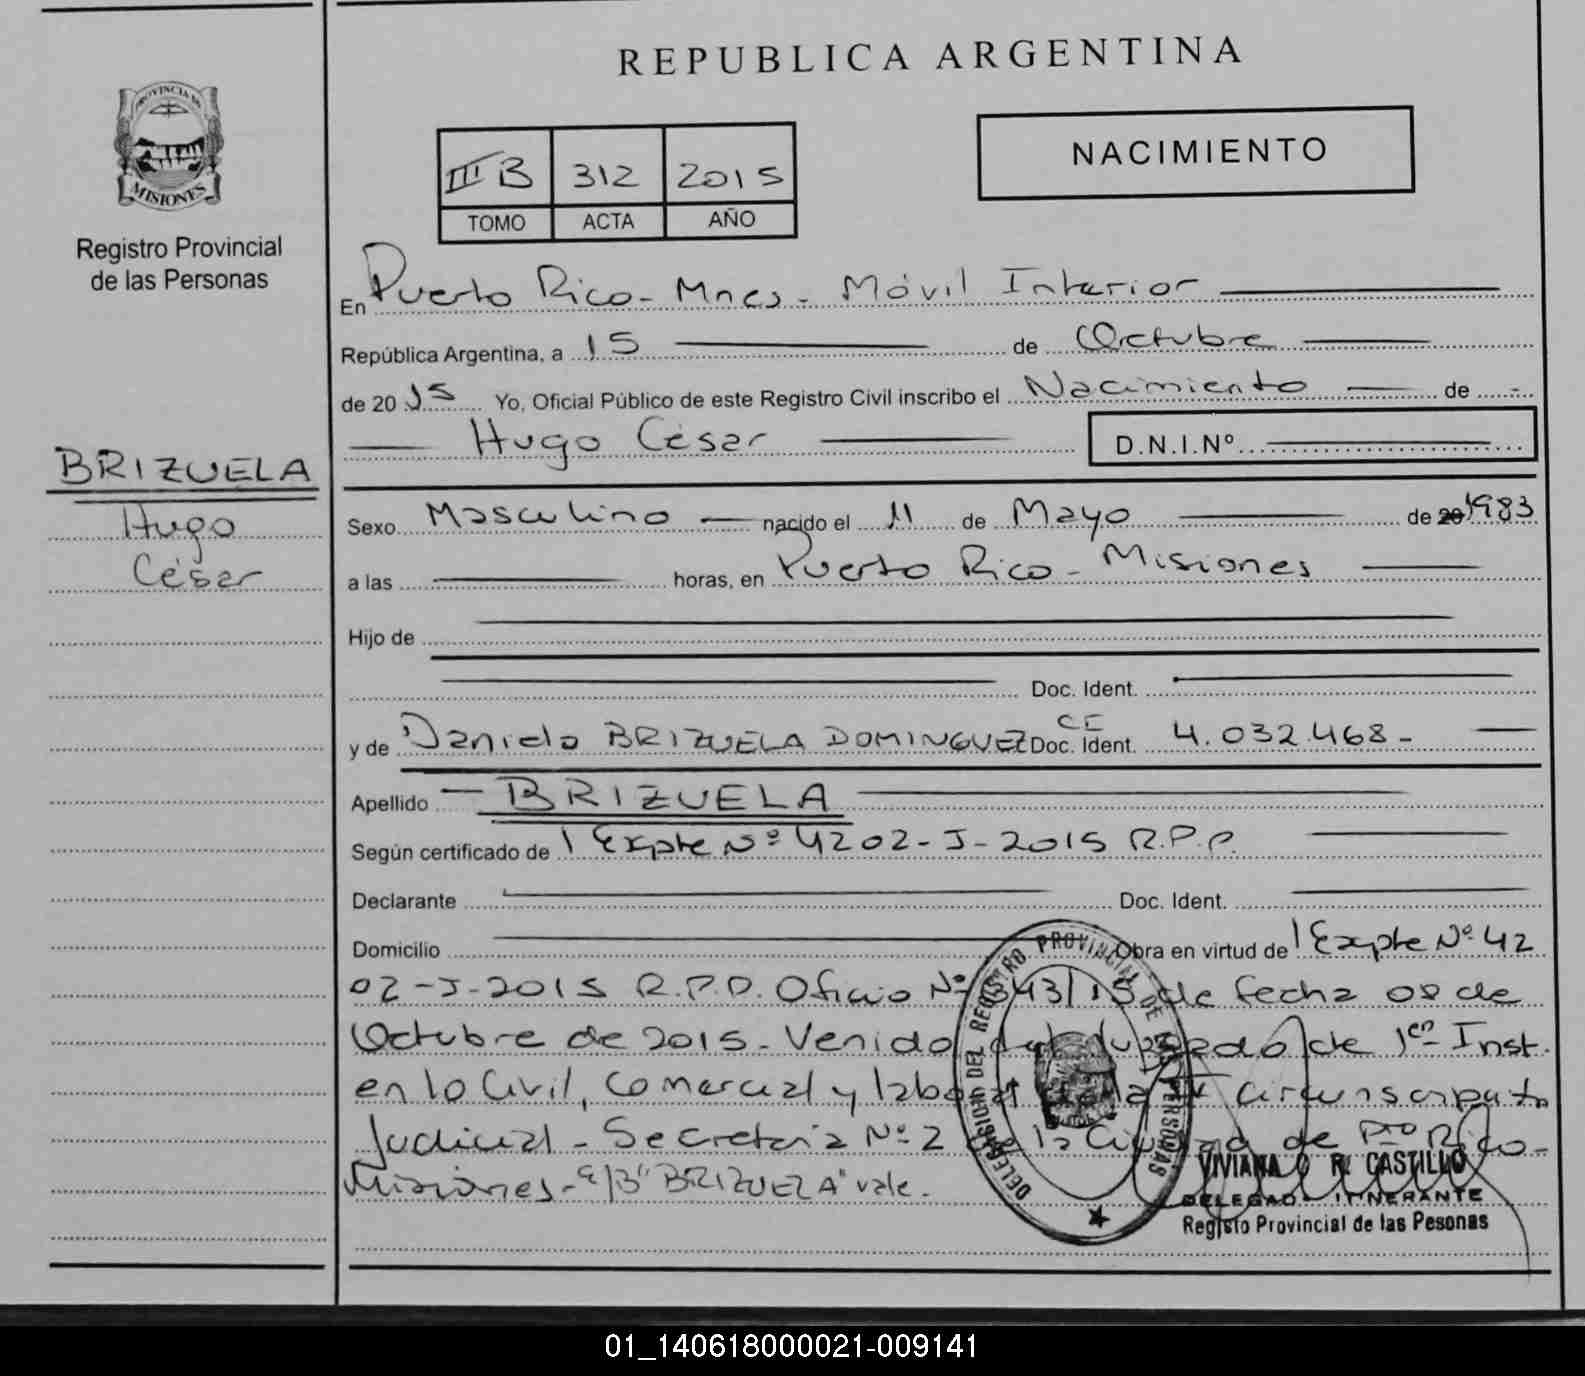 REPUBLICA ARGENTINA
PROVINCIA DE
MISIONES
Registro Provincial
de las Personas
NACIMIENTO
III B 312 2015
TOMO ACTA AÑO
En Puerto Rico - Mnes - Móvil Interior
República Argentina, a 15 de Octubre
de 20 15 Yo, Oficial Público de este Registro Civil inscribo el Nacimiento de
Hugo César D.N.I.Nº
BRIZUELA
Hugo
César
Sexo Masculino nacido el 11 de Mayo de 20 1983
a las horas, en Puerto Rico - Misiones
Hijo de
Doc. Ident.
y de Daniela BRIZUELA DOMINGUEZ Doc. Ident. CE 4.032.468-
Apellido BRIZUELA
Según certificado de Expte Nº 4202-J-2015 R.P.P.
Declarante Doc. Ident.
Domicilio Obra en virtud de Expte Nº 42
02-J-2015 R.P.P. Oficio Nº 343/15 de fecha 08 de
Octubre de 2015- Venido del Juzgado de 1er Inst.
en lo Civil, Comercial y laboral de la Circunscripción
Judicial - Secretaría Nº 2 de la Ciudad de Pto Rico-
Misiones- E/B "BRIZUELA" vale.
DELEGACION DEL REGISTRO PROVINCIAL DE LAS PERSONAS
VIVIANA R. CASTILLO
DELEGADA ITINERANTE
Registo Provincial de las Pesonas
01_140618000021-009141